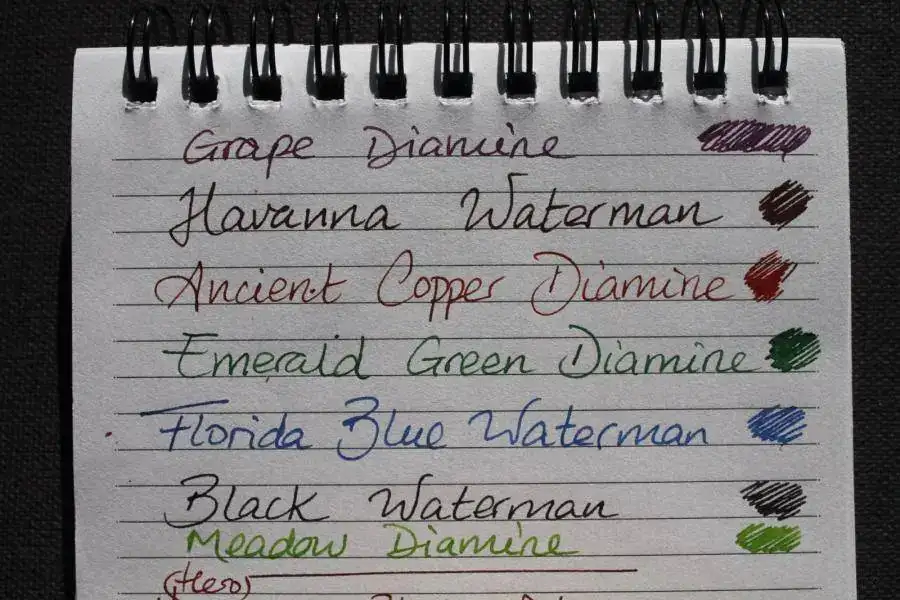 Grape Diamine
Havanna Waterman
Ancient Copper Diamine
Emerald Green Diamine
Florida Blue Waterman
Black Waterman
Meadow Diamine
(Hero)